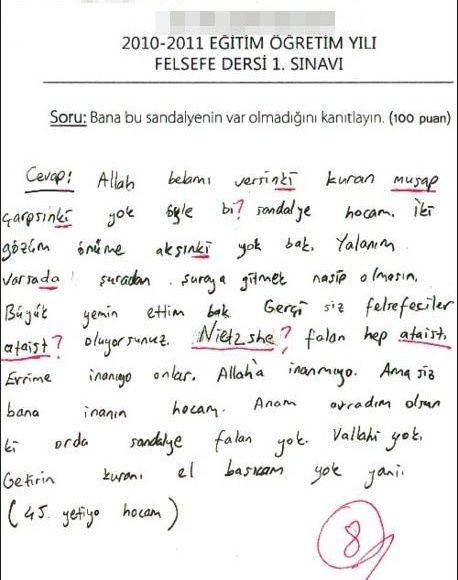 2010-2011 EĞİTİM ÖĞRETİM YILI
FELSEFE DERSİ 1. SINAVI
Soru: Bana bu sandalyenin var olmadığını kanıtlayın. (100 puan)
Cevap: Allah belamı versinki kuran muşap
çarpsınki yok öyle bi? sandalye hocam. İki
gözüm önüme aksınki yok bak. Yalanım
varsada şuradan şuraya gitmek nasip olmasın.
Büyük yemin ettim bak Gerçi siz felsefeciler
ataist? oluyorsunuz. Nietzshe? falan hep ataist.
Evrime inanıyo onlar. Allah'a inanmıyo. Ama siz
bana inanın hocam. Anam avradım olsun
ki orda sandalye falan yok. Vallahi yok.
Getirin kuranı el basıcam yok yani.
(45 yetiyo hocam)
8